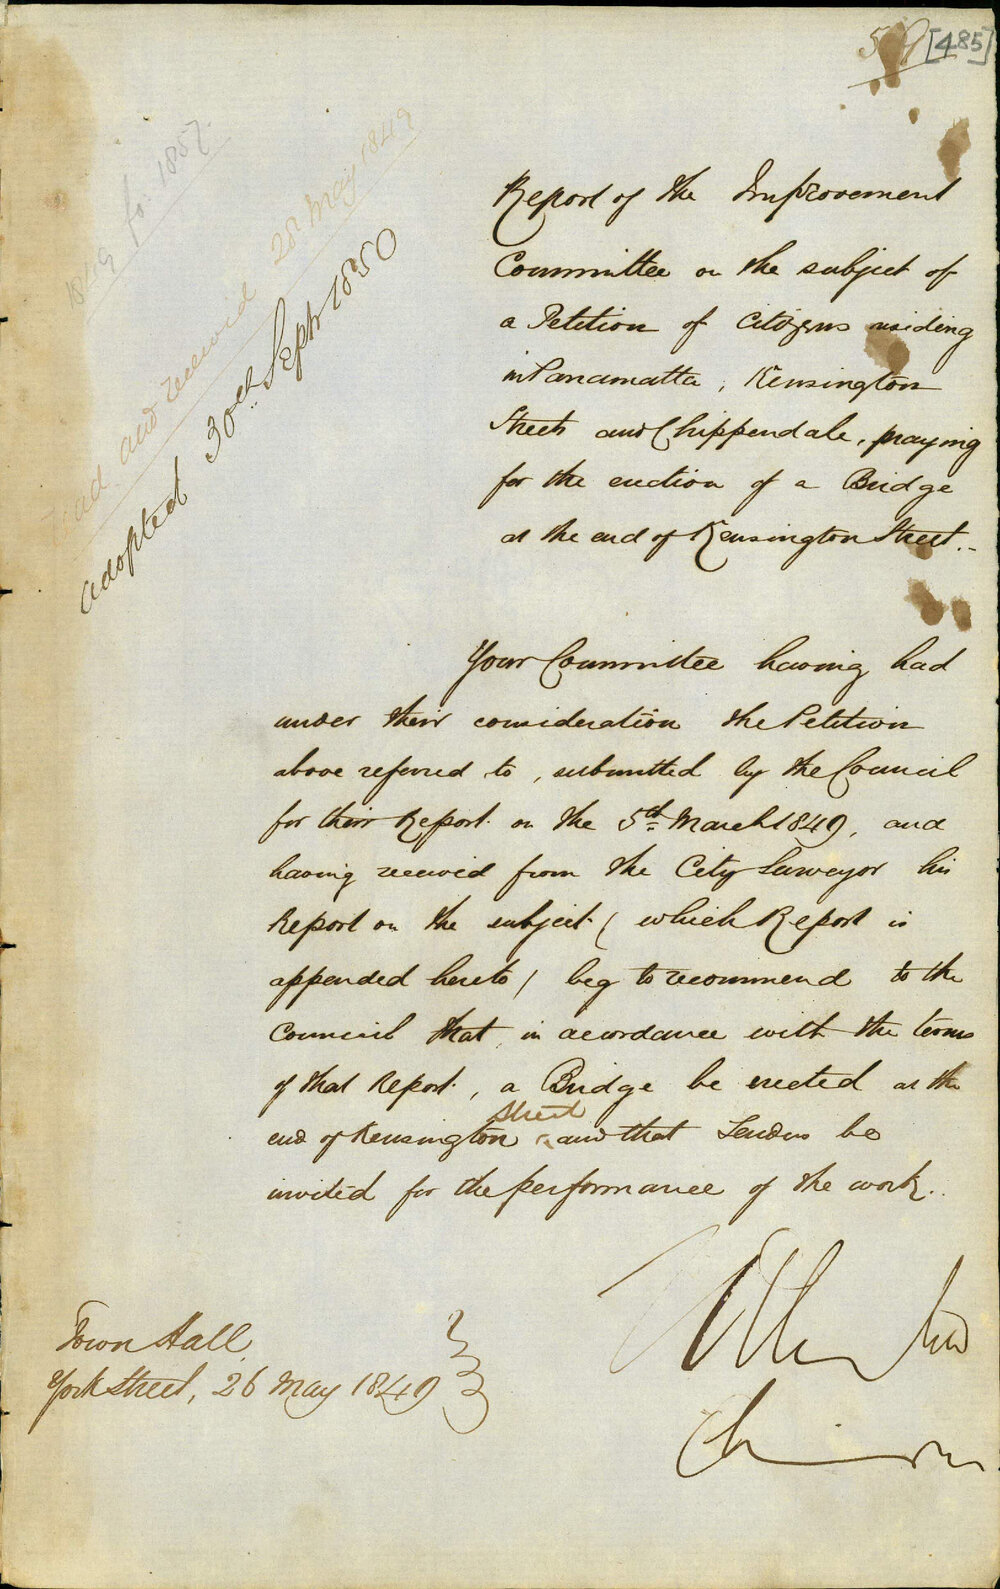 [485]
1849 fo. 1857.
Read and received 28 May 1849
adopted 30th Septr 1850
Report of the Improvement
Committee on the subject of
a Petition of Citizens residing
in Parramatta, Kensington
Streets and Chippendale, praying
for the erection of a Bridge
at the end of Kensington Street.
Your Committee having had
under their consideration the Petition
above referred to, submitted by the Council
for their Report on the 5th March 1849, and
having received from the City Surveyor his
Report on the subject (which Report is
appended hereto) beg to recommend to the
Council that, in accordance with the terms
of that Report, a Bridge be erected at the
street
end of Kensington ^ and that Tenders be
invited for the performance of the work.
Town Hall
York Street, 26 May 1849
Chairman